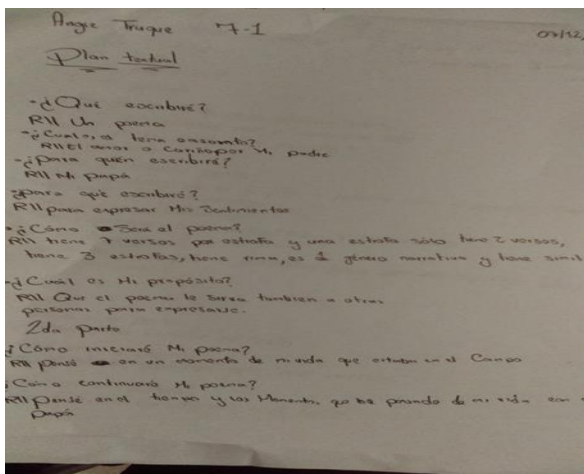 Angie Truque 7-1 07/12
Plan textual
-¿Qué escribiré?
R// Un poema
-¿Cual es el tema
R// El amor o Cariño por Mi padre
-¿para quién escribiré?
R// Mi papá
-¿para qué escribiré?
R// para expresar Mis Sentimientos
-¿Cómo Será el poema?
R// tiene 7 versos por estrofa y una estrofa sólo tiene 2 versos,
tiene 3 estrofas, tiene rima, es género narrativo y tiene simil
-¿Cuál es Mi propósito?
R// Que el poema le sirva tambien a otras
personas para expresarse.
2da parte
¿Cómo iniciaré Mi poema?
R// pensé en un momento de mi vida que estaba en el Campo
¿Cómo continuaré Mi poema?
R// pensé en el tiempo y los Momentos que he pasado de mi vida con
papá